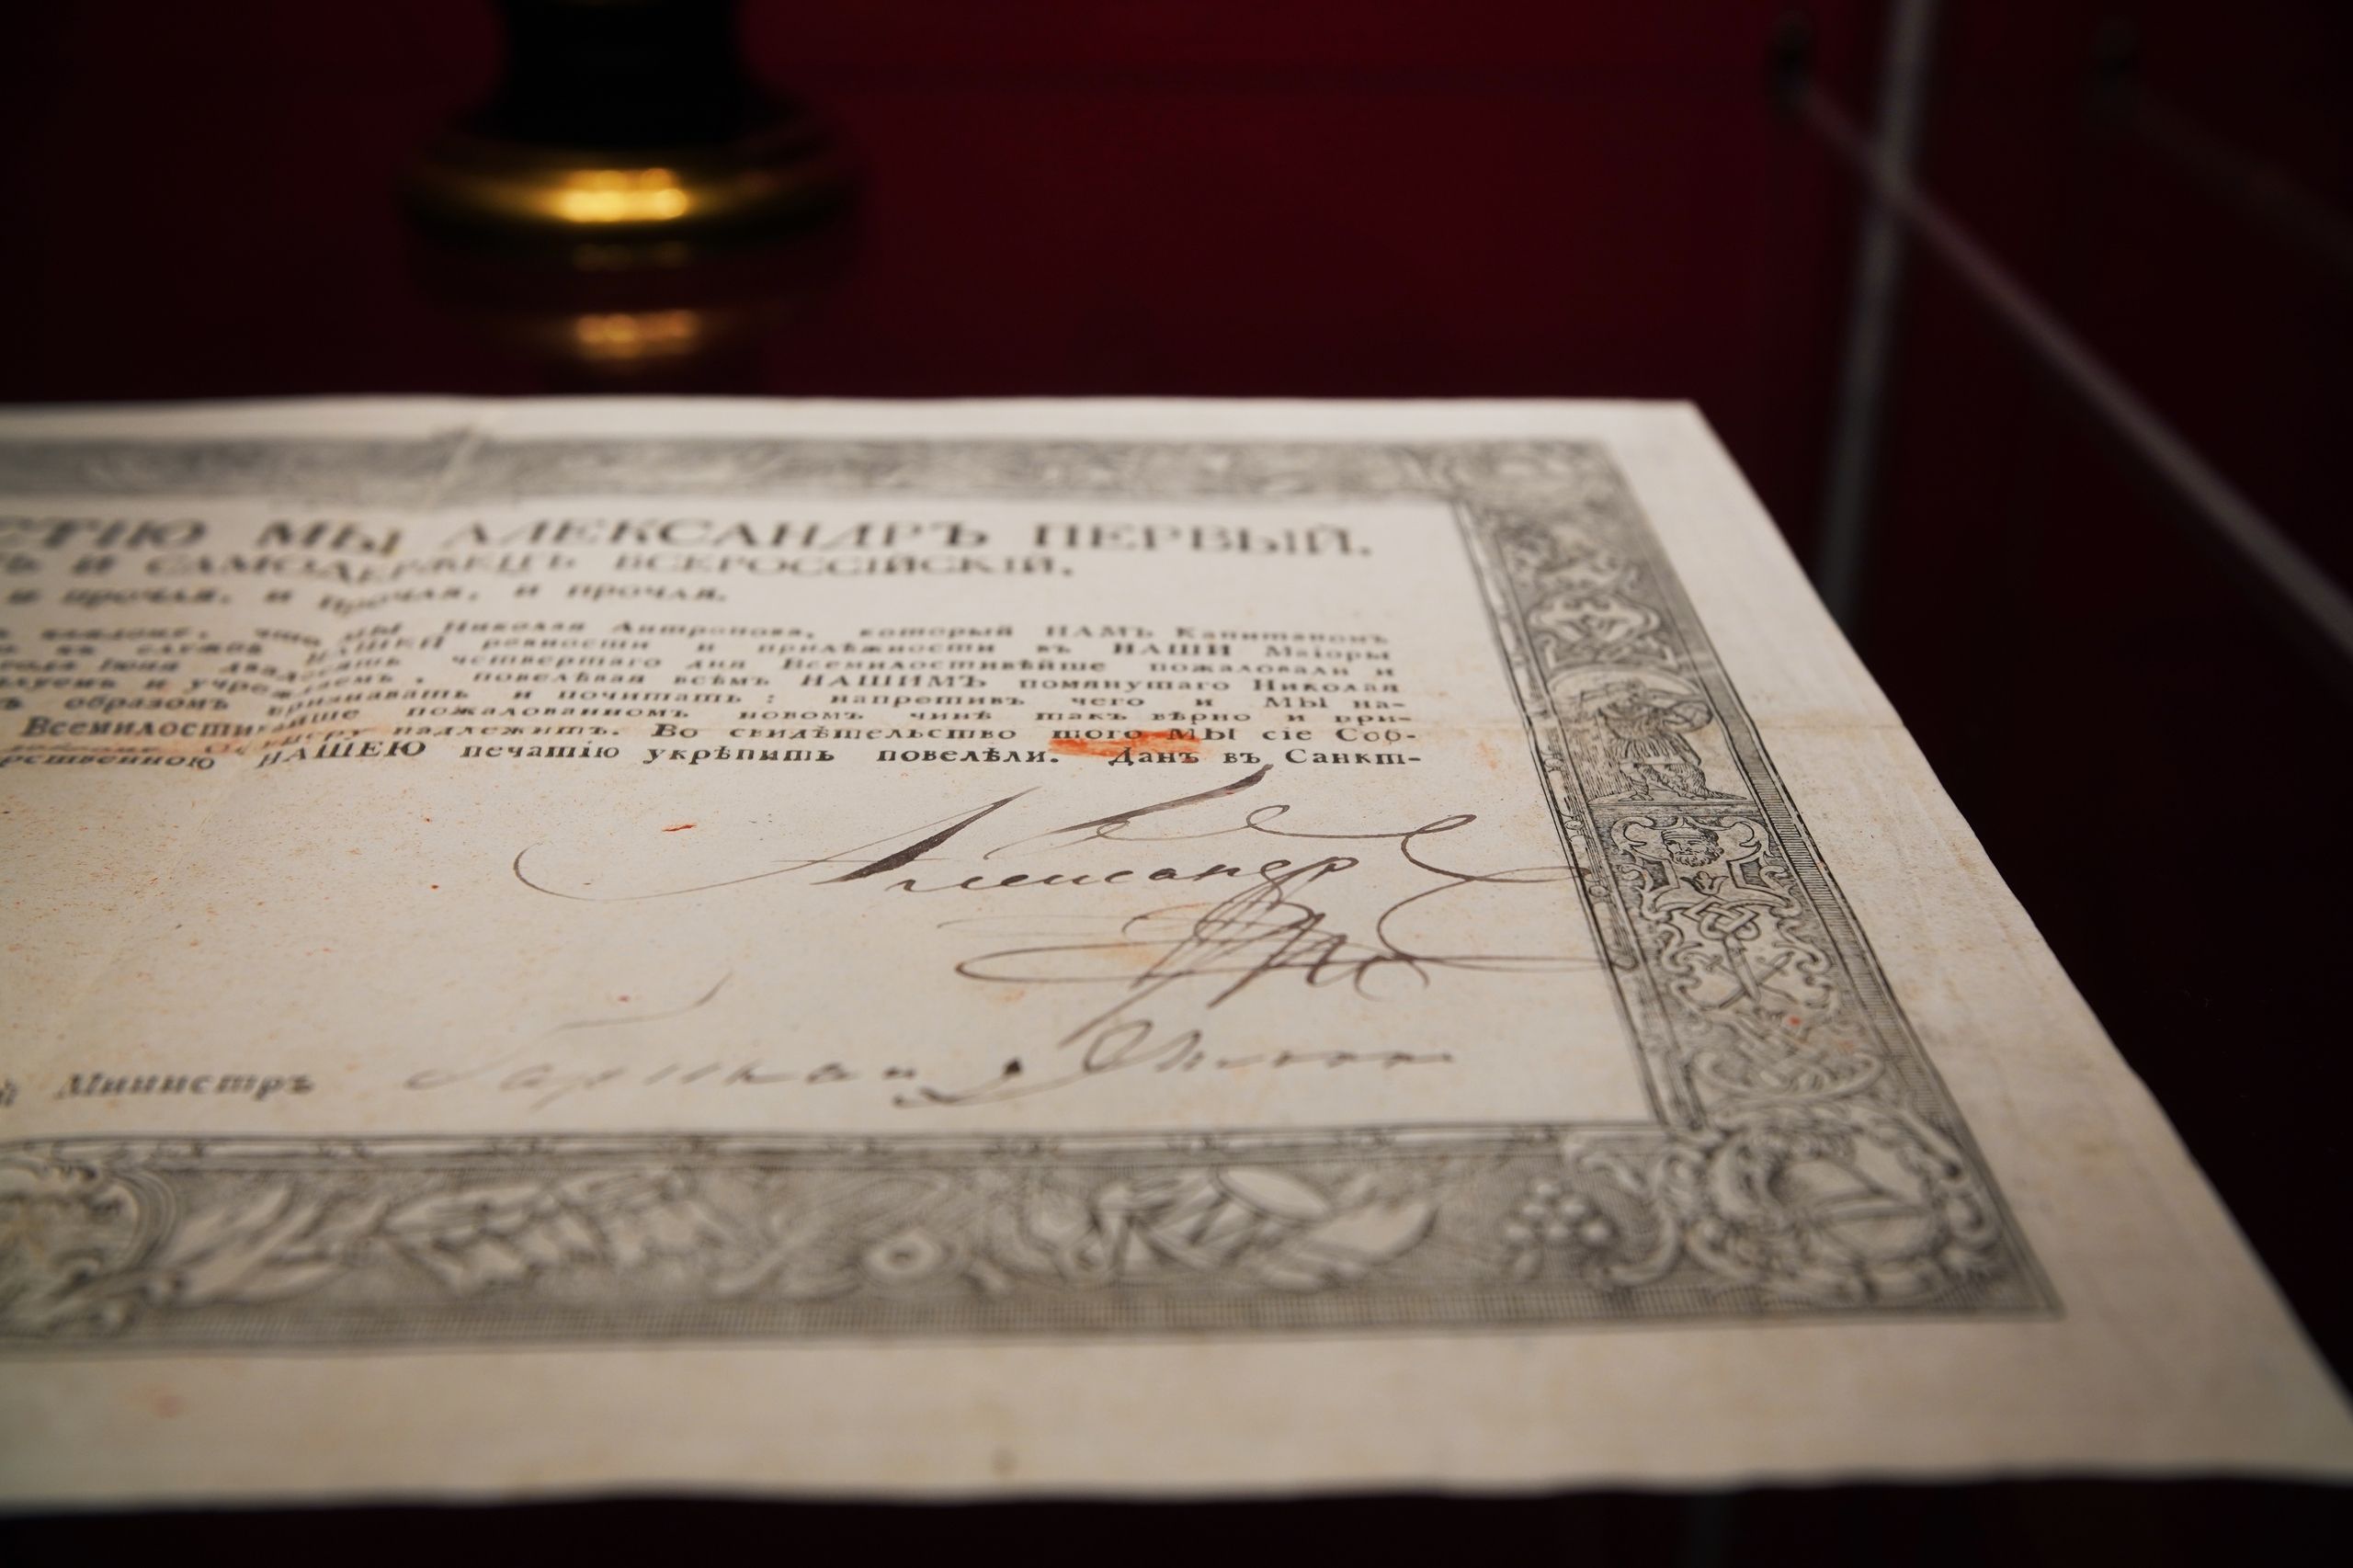 СТІЮ МЫ АЛЕКСАНДРЪ ПЕРВЫЙ,
И САМОДЕРЖЕЦЪ ВСЕРОССІЙСКІЙ,
и прочая, и прочая, и прочая.
что МЫ Николая Антропова, который НАМЪ Капитаномъ
въ службѣ НАШЕЙ ревности и прилѣжности въ НАШИ Маіоры
года Іюня двадесять четвертаго дня Всемилостивѣйше пожаловали и
и учреждаемъ, повелѣвая всѣмъ НАШИМЪ помянутаго Николая
образомъ признавать и почитать: напротивъ чего и МЫ на-
Всемилостивѣйше пожалованномъ новомъ чинѣ такъ вѣрно и при-
Офицеру надлежитъ. Во свидѣтельство того МЫ сіе Соб-
рственною НАШЕЮ печатію укрѣпить повелѣли. Данъ въ Санкт-
Александр
й Министръ